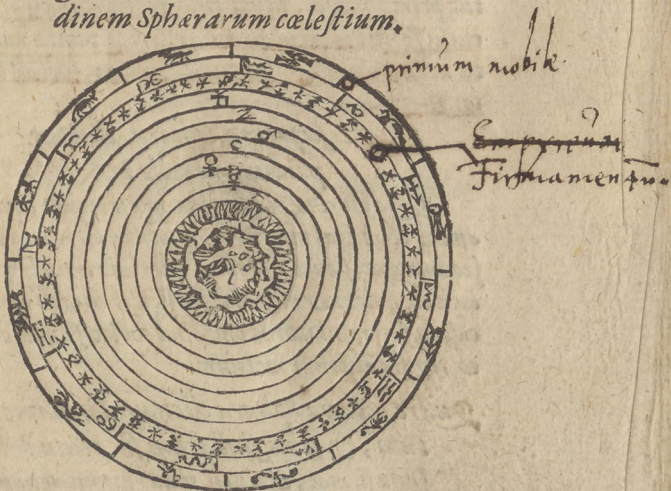 dinem Sphærarum cœleſtium.
primum mobile.
Firmamentu